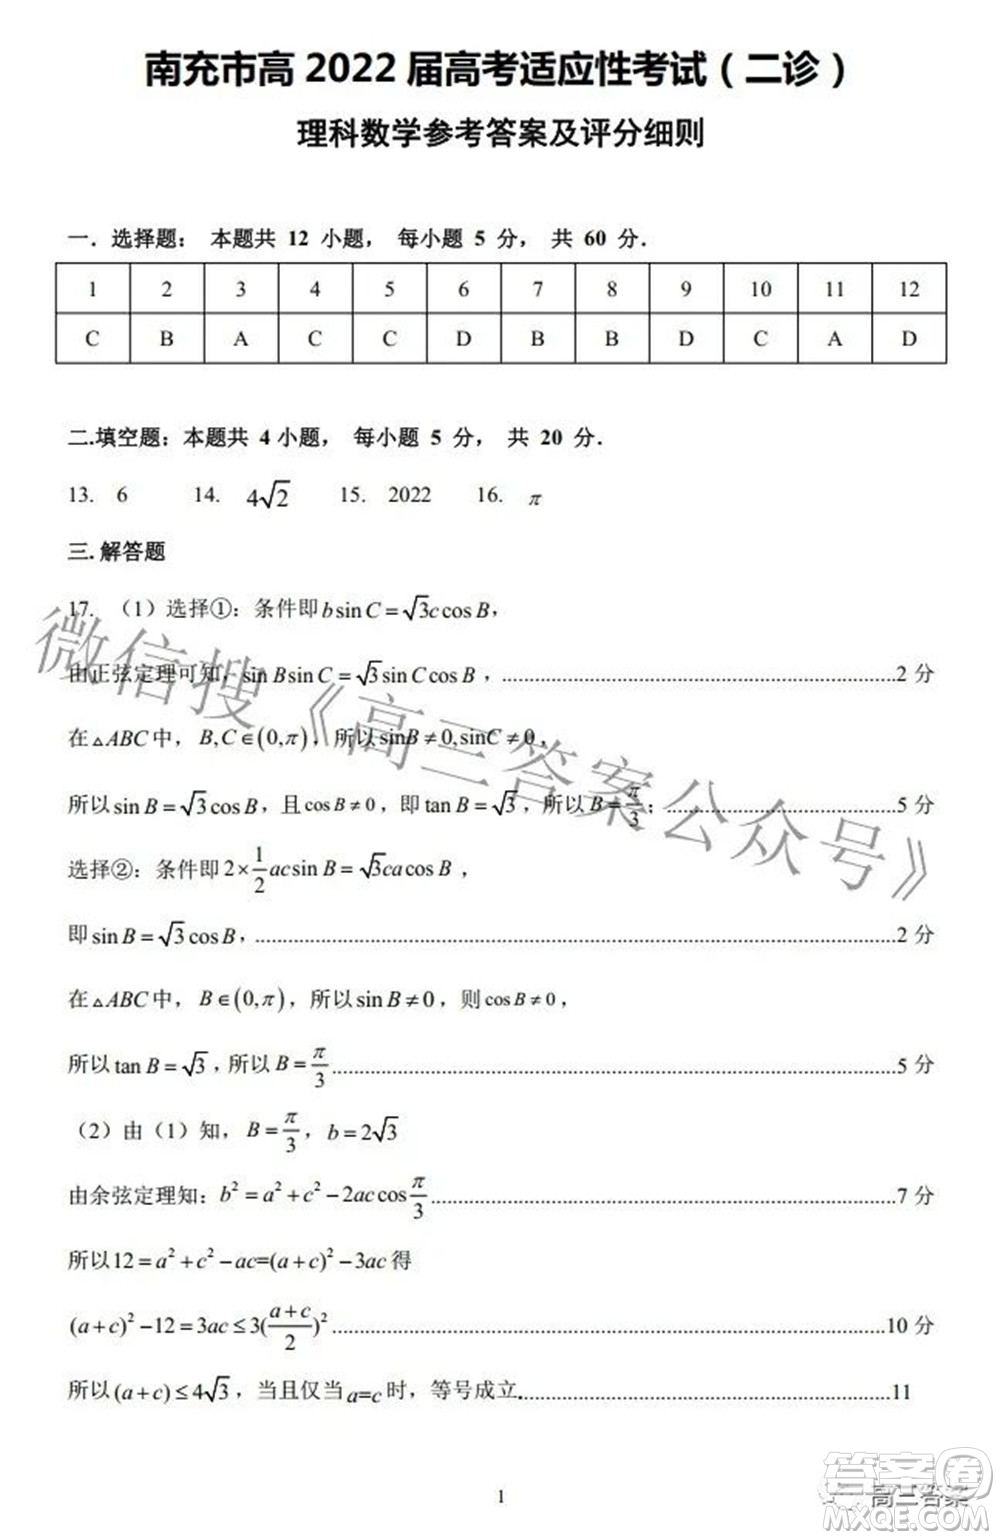 南充市高 2022 届高考适应性考试（二诊）
理科数学参考答案及评分细则
一．选择题： 本题共 12 小题， 每小题 5 分， 共 60 分．
1 2 3 4 5 6 7 8 9 10 11 12
C B A C C D B B D C A D
二.填空题：本题共 4 小题， 每小题 5 分， 共 20 分．
13. 6 14. 4√2 15. 2022 16. π
三. 解答题
17. （1）选择①：条件即 b sin C = √3 c cos B，
由正弦定理可知，sin B sin C = √3 sin C cos B ，..........2 分
在 △ABC 中， B, C ∈ (0, π)，所以 sinB ≠ 0, sinC ≠ 0，
所以 sin B = √3 cos B，且 cos B ≠ 0，即 tan B = √3，所以 B = π/3；..........5 分
选择②：条件即 2 × 1/2 ac sin B = √3 ca cos B ，
即 sin B = √3 cos B，..........2 分
在 △ABC 中， B ∈ (0, π)，所以 sin B ≠ 0，则 cos B ≠ 0，
所以 tan B = √3，所以 B = π/3..........5 分
（2）由（1）知， B = π/3，b = 2√3
由余弦定理知：b² = a² + c² − 2ac cos π/3..........7 分
所以 12 = a² + c² − ac=(a + c)² − 3ac 得
(a + c)² − 12 = 3ac ≤ 3((a + c)/2)²..........10 分
所以 (a + c) ≤ 4√3 ，当且仅当 a=c 时，等号成立..........11
1
微信搜《高三答案公众号》
答案卷
高三答案
MXQE.COM